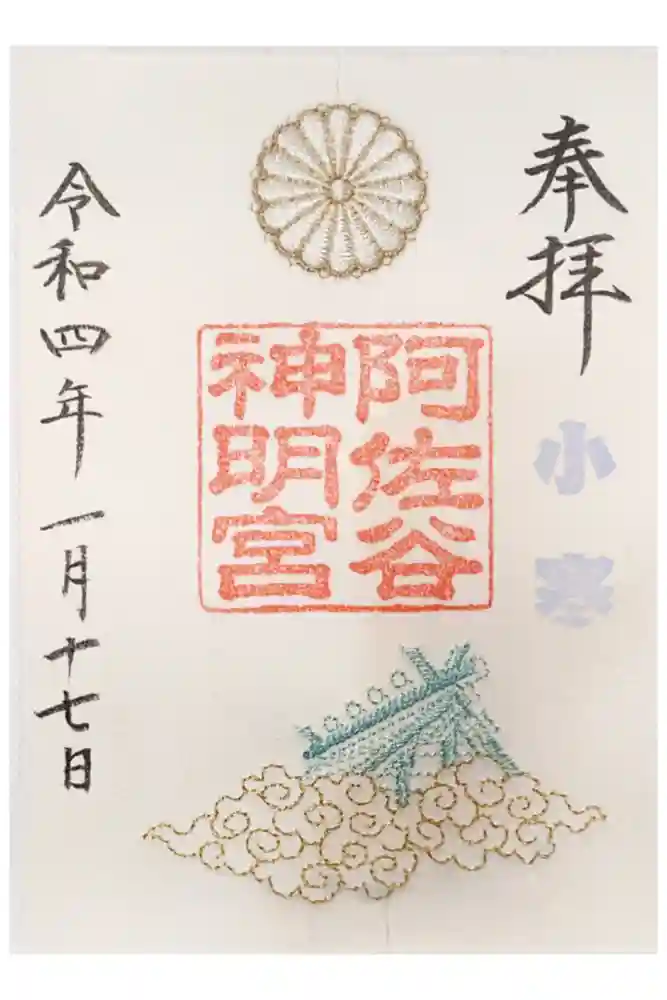 奉拝
小寒
阿佐谷
神明宮
令和四年一月十七日